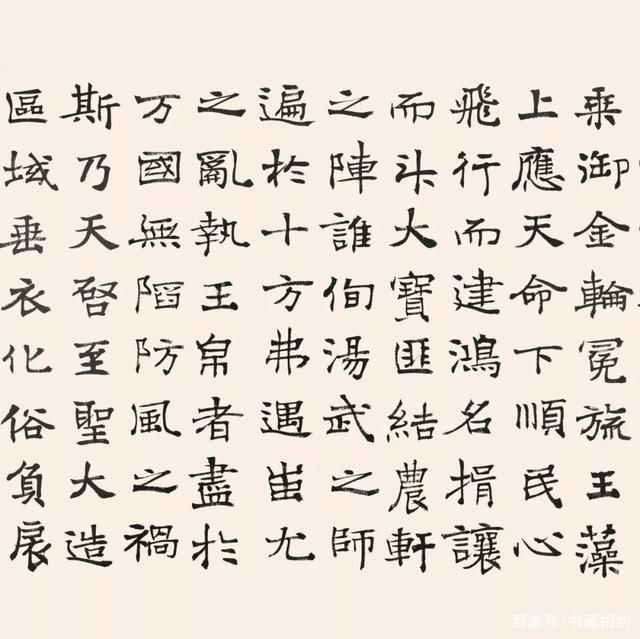 乘御金輪冕旒玉藻
上應天命下順民心
飛行而建鴻名揖讓
而升大寶匪結農軒
之陣誰伺湯武之師
遍於十方弗遇蚩尤
之亂執玉帛者盡於
万國無陷防風之禍
斯乃天啓至聖大造
區域垂衣化俗負扆
百家号/书画相约